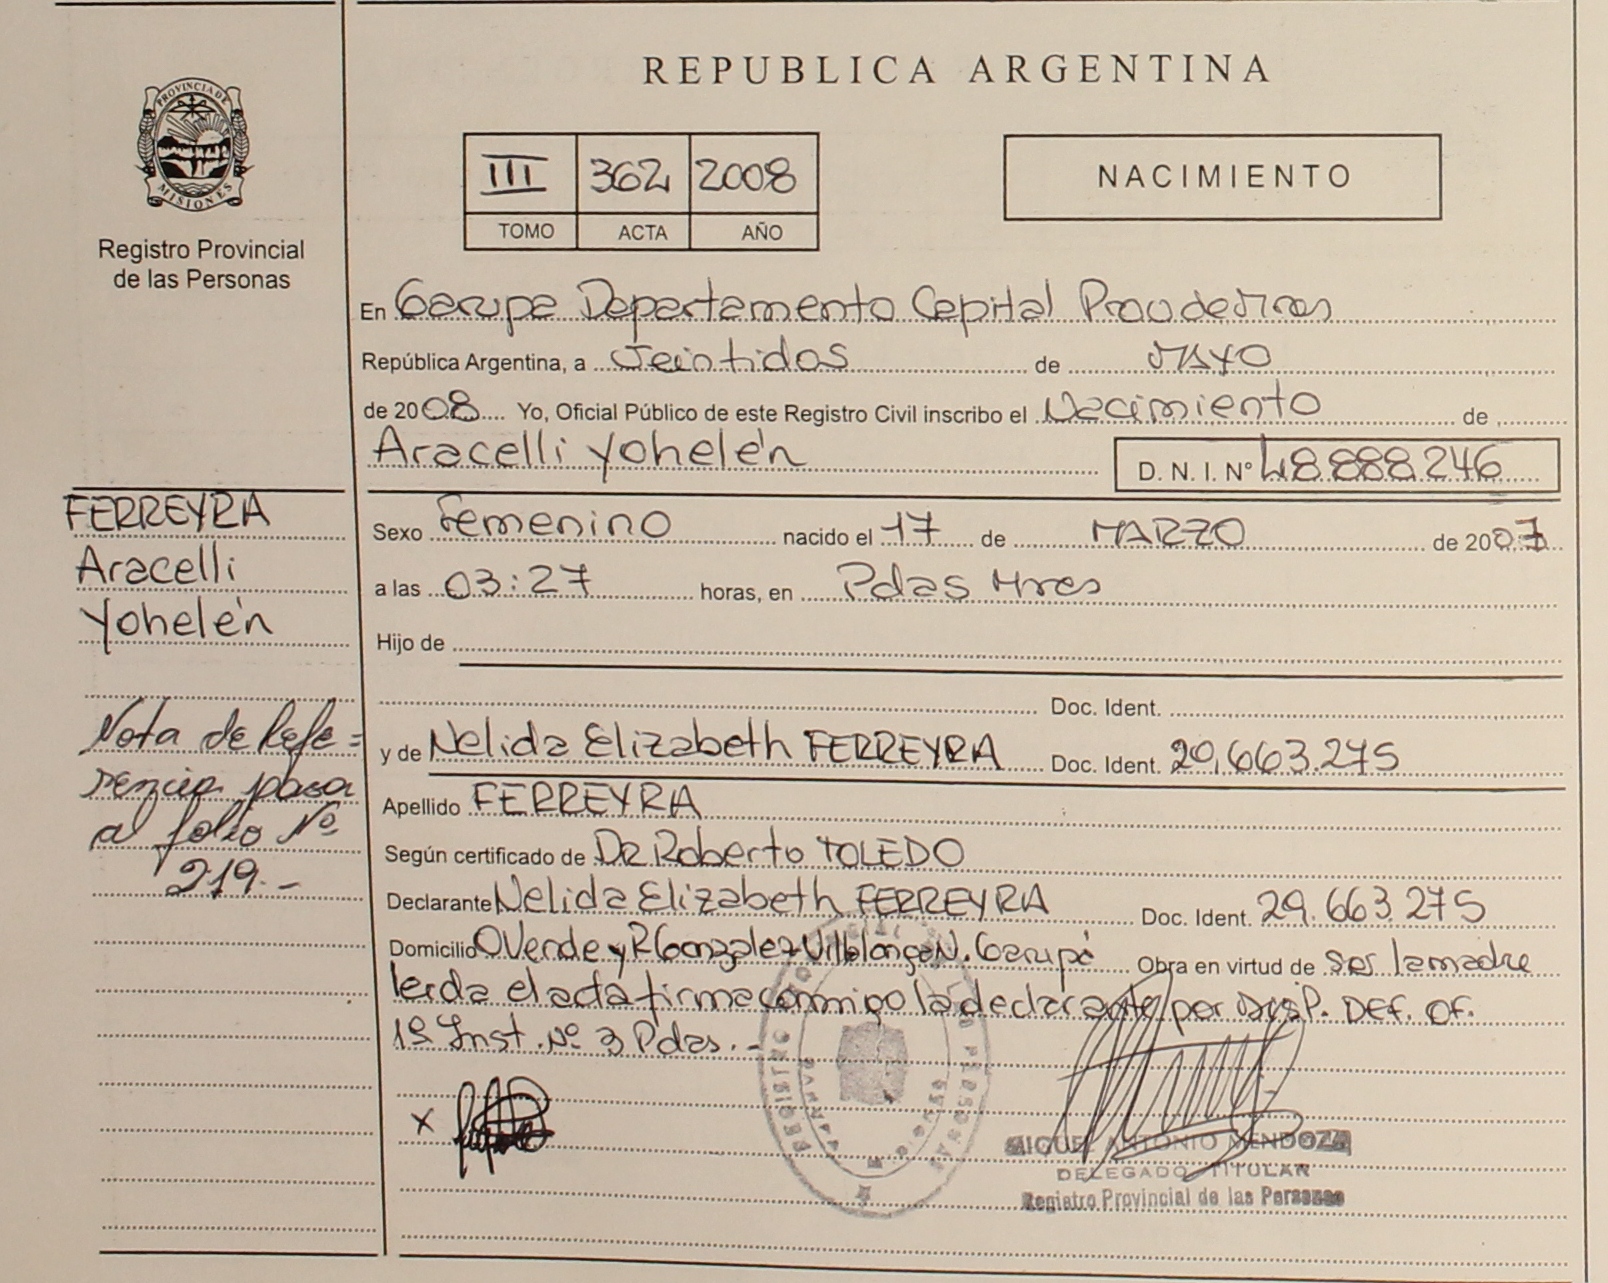 PROVINCIA DE
MISIONES
Registro Provincial
de las Personas
REPUBLICA ARGENTINA
III 362 2008
TOMO ACTA AÑO
NACIMIENTO
En Garupa Departamento Capital Prov de Mnes
República Argentina, a Veintidos de MAYO
de 2008 Yo, Oficial Público de este Registro Civil inscribo el Nacimiento de
Aracelli Yohelén D. N. I. Nº 48.888.246
FERREYRA
Aracelli
Yohelén
Nota de Refe=
rencia pasa
al folio Nº
219.-
Sexo Femenino nacido el 17 de MARZO de 2007
a las 03:27 horas, en Pdas Mnes
Hijo de
Doc. Ident.
y de Nelida Elizabeth FERREYRA Doc. Ident. 29.663.275
Apellido FERREYRA
Según certificado de DR Roberto TOLEDO
Declarante Nelida Elizabeth FERREYRA Doc. Ident. 29.663.275
Domicilio O Verde y R Gonzalez Villalonga N. Garupá Obra en virtud de ser la madre
leida el acta firma conmigo la declarante por DISP. DEF. OF.
1º Inst. Nº 3 Pdas.-
X
MIGUEL ANTONIO MENDOZA
DELEGADO TITULAR
Registro Provincial de las Personas